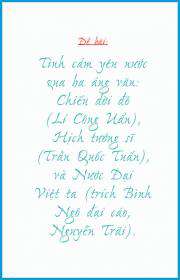 Đề bài:
Tình cảm yêu nước
qua ba áng văn:
Chiếu dời đô
(Lí Công Uẩn),
Hịch tướng sĩ
(Trần Quốc Tuấn),
và Nước Đại
Việt ta (trích Bình
Ngô đại cáo,
Nguyễn Trãi).